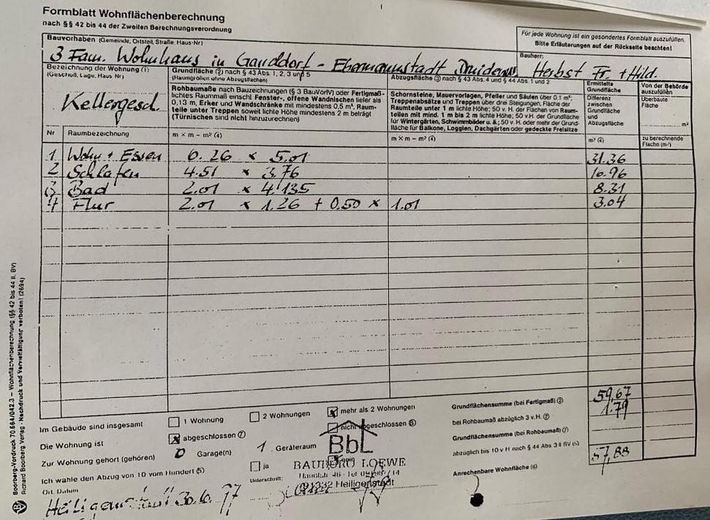 Formblatt Wohnflächenberechnung
nach §§ 42 bis 44 der Zweiten Berechnungsverordnung
Für jede Wohnung ist ein gesondertes Formblatt auszufüllen.
Bitte Erläuterungen auf der Rückseite beachten!
Bauvorhaben (Gemeinde, Ortsteil, Straße, Haus-Nr.)
3 Fam. Wohnhaus in Gasseldorf - Ebermannstadt
Bauherr:
Herbst Fr. + Hild.
Bezeichnung der Wohnung (1)
(Geschoß, Lage, Haus Nr.)
Kellergesch.
Grundfläche (2) nach § 43 Abs. 1, 2, 3 und 5
(Raumangaben ohne Abzugsflächen)
Rohbaumaße nach Bauzeichnungen (§ 3 BauVorlV) oder Fertigmaß-
lichtes Raummaß einschl. Fenster-, offene Wandnischen tiefer als
0,13 m, Erker und Wandschränke mit mindestens 0,5 m², Raum-
teile unter Treppen soweit lichte Höhe mindestens 2 m beträgt
(Türnischen sind nicht hinzuzurechnen)
Abzugsfläche (3) nach § 43 Abs. 4 und § 44 Abs. 1 und 2
Schornsteine, Mauervorlagen, Pfeiler und Säulen über 0,1 m²;
Treppenabsätze und Treppen über drei Steigungen, Fläche der
Raumteile unter 1 m lichte Höhe; 50 v. H. der Flächen von Raum-
teilen mit mind. 1 m bis 2 m lichte Höhe; 50 v.H. der Grundfläche
für Wintergärten, Schwimmbäder u. ä.; 50 v.H. oder mehr der Grund-
fläche für Balkone, Loggien, Dachgärten oder gedeckte Freisitze
Ermittelte
Grundfläche
Differenz
zwischen
Grundfläche
und
Abzugsfläche
Von der Behörde
auszufüllen
Überbaute
Fläche
m²
zu berechnende
Fläche (m²)
Nr Raumbezeichnung m × m – m² (4) m × m – m² (4) m² (4)
1 Wohn + Essen 6.26 × 5.01 31.36
2 Schlafen 4.51 × 3.76 16.96
3 Bad 2.01 × 4.135 8.31
4 Flur 2.01 × 1.26 + 0.50 × 1.01 3.04
Im Gebäude sind insgesamt
1 Wohnung
2 Wohnungen
mehr als 2 Wohnungen
Die Wohnung ist
abgeschlossen (7)
nicht abgeschlossen (8)
Zur Wohnung gehört (gehören)
0 Garage(n)
1 Geräteraum
Ich wähle den Abzug von 10 vom Hundert (5)
ja
Grundflächensumme (bei Fertigmaß) (2)
59.67
bei Rohbaumaß abzüglich 3 v.H. (2)
1.79
Grundflächensumme (bei Rohbaumaß)
abzüglich bis 10 v H nach § 44 Abs. 3 II BV (5)
Anrechenbare Wohnfläche (6)
57,88
BbL
BAUBÜRO LOEWE
91332 Heiligenstadt
Ort, Datum
Unterschrift:
Heiligenstadt 30.6.97